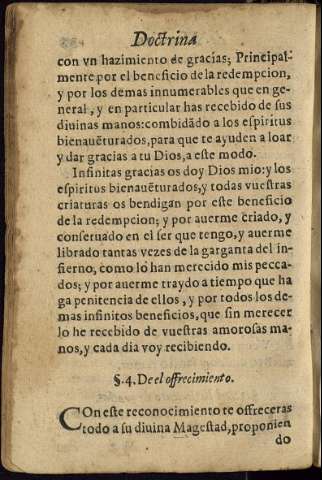 Doctrina
con vn hazimiento de gracias; Principal-
mente por el beneficio de la redempcion,
y por los demas innumerables que en ge-
neral, y en particular has recebido de sus
diuinas manos: combidãdo a los espiritus
bienauẽturados, para que te ayuden a loar
y dar gracias a tu Dios, a este modo.
Infinitas gracias os doy Dios mio: y los
espiritus bienauẽturados, y todas vuestras
criaturas os bendigan por este beneficio
de la redempcion; y por auerme criado, y
conseruado en el ser que tengo, y auerme
librado tantas vezes de la garganta del in-
fierno, como lo han merecido mis pecca-
dos; y por auerme traydo a tiempo que ha
ga penitencia de ellos, y por todos los de-
mas infinitos beneficios, que sin merecer
lo he recebido de vuestras amorosas ma-
nos, y cada dia voy recibiendo.
§. 4. De el offrecimiento.
COn este reconocimiento te offreceras
todo a su diuina Magestad, proponien
do